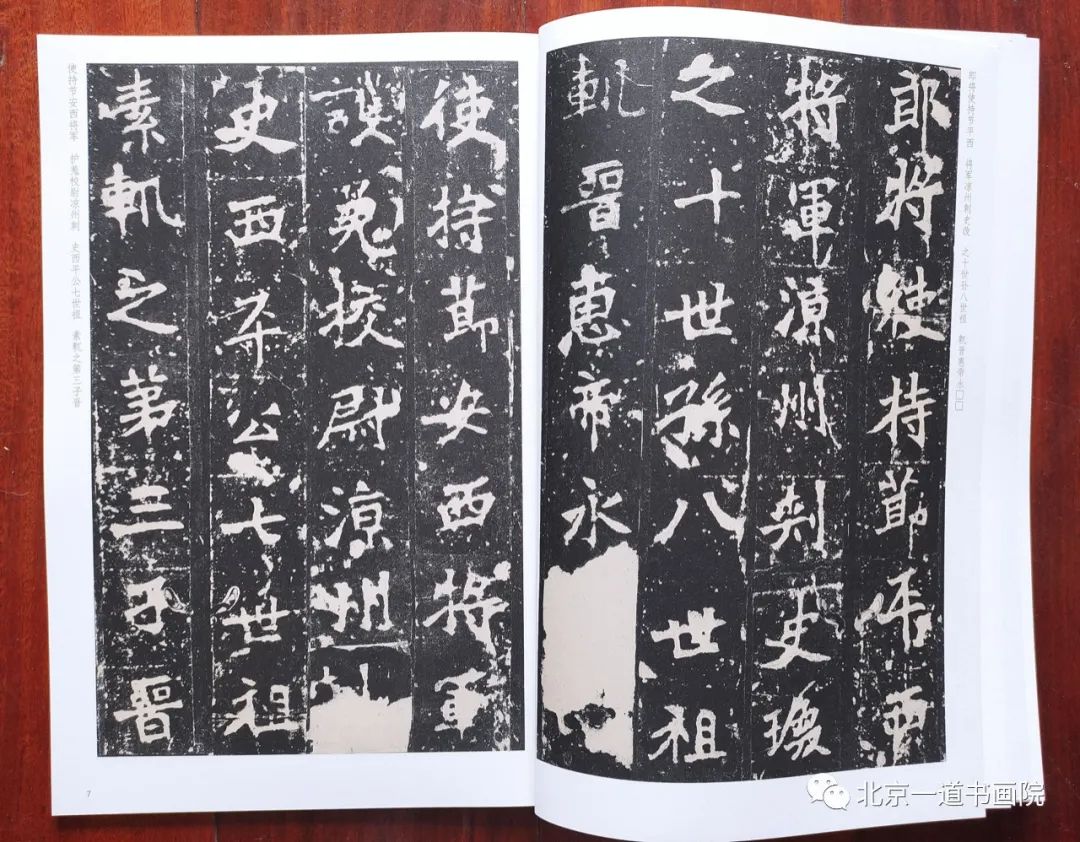 郎将使持节平西 将军凉州刺史瓌 之十世孙八世祖 軌晋惠帝永□□
郎將使持節平西
將軍涼州刺史瓌
之十世孫八世祖
軌晉惠帝永
使持節安西將軍
護羌校尉涼州
史西平公七世祖
素軌之第三子晉
使持节安西将军 护羌校尉凉州刺 史西平公七世祖 素軌之第三子晋
7
北京一道书画院